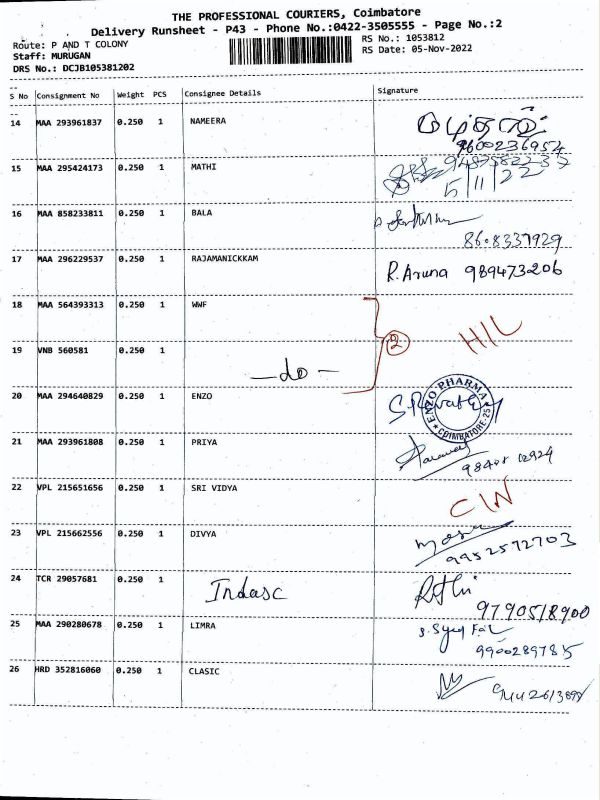 THE PROFESSIONAL COURIERS, Coimbatore
Delivery Runsheet - P43 - Phone No.:0422-3505555 - Page No.:2
Route: P AND T COLONY
RS No.: 1053812
Staff: MURUGAN
RS Date: 05-Nov-2022
DRS No.: DCJB105381202
S No Consignment No Weight PCS Consignee Details Signature
14 MAA 293961837 0.250 1 NAMEERA
9600236954
15 MAA 295424173 0.250 1 MATHI
5/11/22
16 MAA 858233811 0.250 1 BALA
8608337929
17 MAA 296229537 0.250 1 RAJAMANICKKAM R.Aruna 989473206
18 MAA 564393313 0.250 1 WWF
2 H/L
19 VNB 560581 0.250 1
-do-
20 MAA 294640829 0.250 1 ENZO
ENZO PHARMA COIMBATORE-25
21 MAA 293961808 0.250 1 PRIYA
22 VPL 215651656 0.250 1 SRI VIDYA
C/N
23 VPL 215662556 0.250 1 DIVYA
9952572703
24 TCR 29057681 0.250 1 Indasc
9790518900
25 MAA 290280678 0.250 1 LIMRA
9900289785
26 HRD 352816060 0.250 1 CLASIC